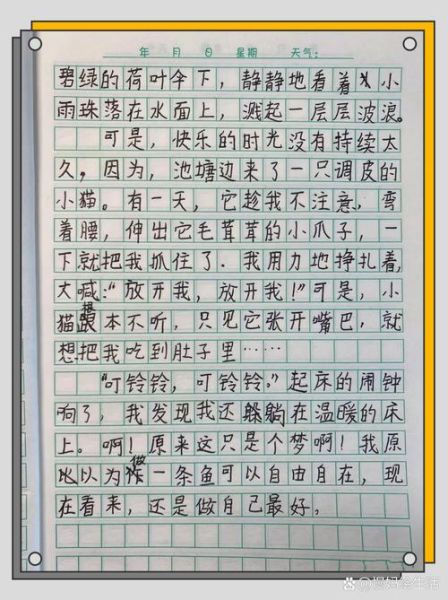 年 月 日 星期 天气:
碧绿的荷叶伞下，静静地看着小
雨珠落在水面上，溅起一层层波浪。
可是，快乐的时光没有持续太
久，因为，池塘边来了一只调皮的
小猫。有一天，它趁我不注意，弯
着腰，伸出它毛茸茸的小爪子，一
下就把我抓住了．我用力地挣扎着，
大喊：“放开我，放开我！”可是，小
猫根本不听，只见它张开嘴巴，就
想把我吃到肚子里……
“叮铃铃，叮铃铃。”起床的闹钟
响了，我发现我还躲躺在温暖的床
上。啊！原来这只是个梦啊！我原
以为做一条鱼可以自由自在，现
在看来，还是做自己最好。